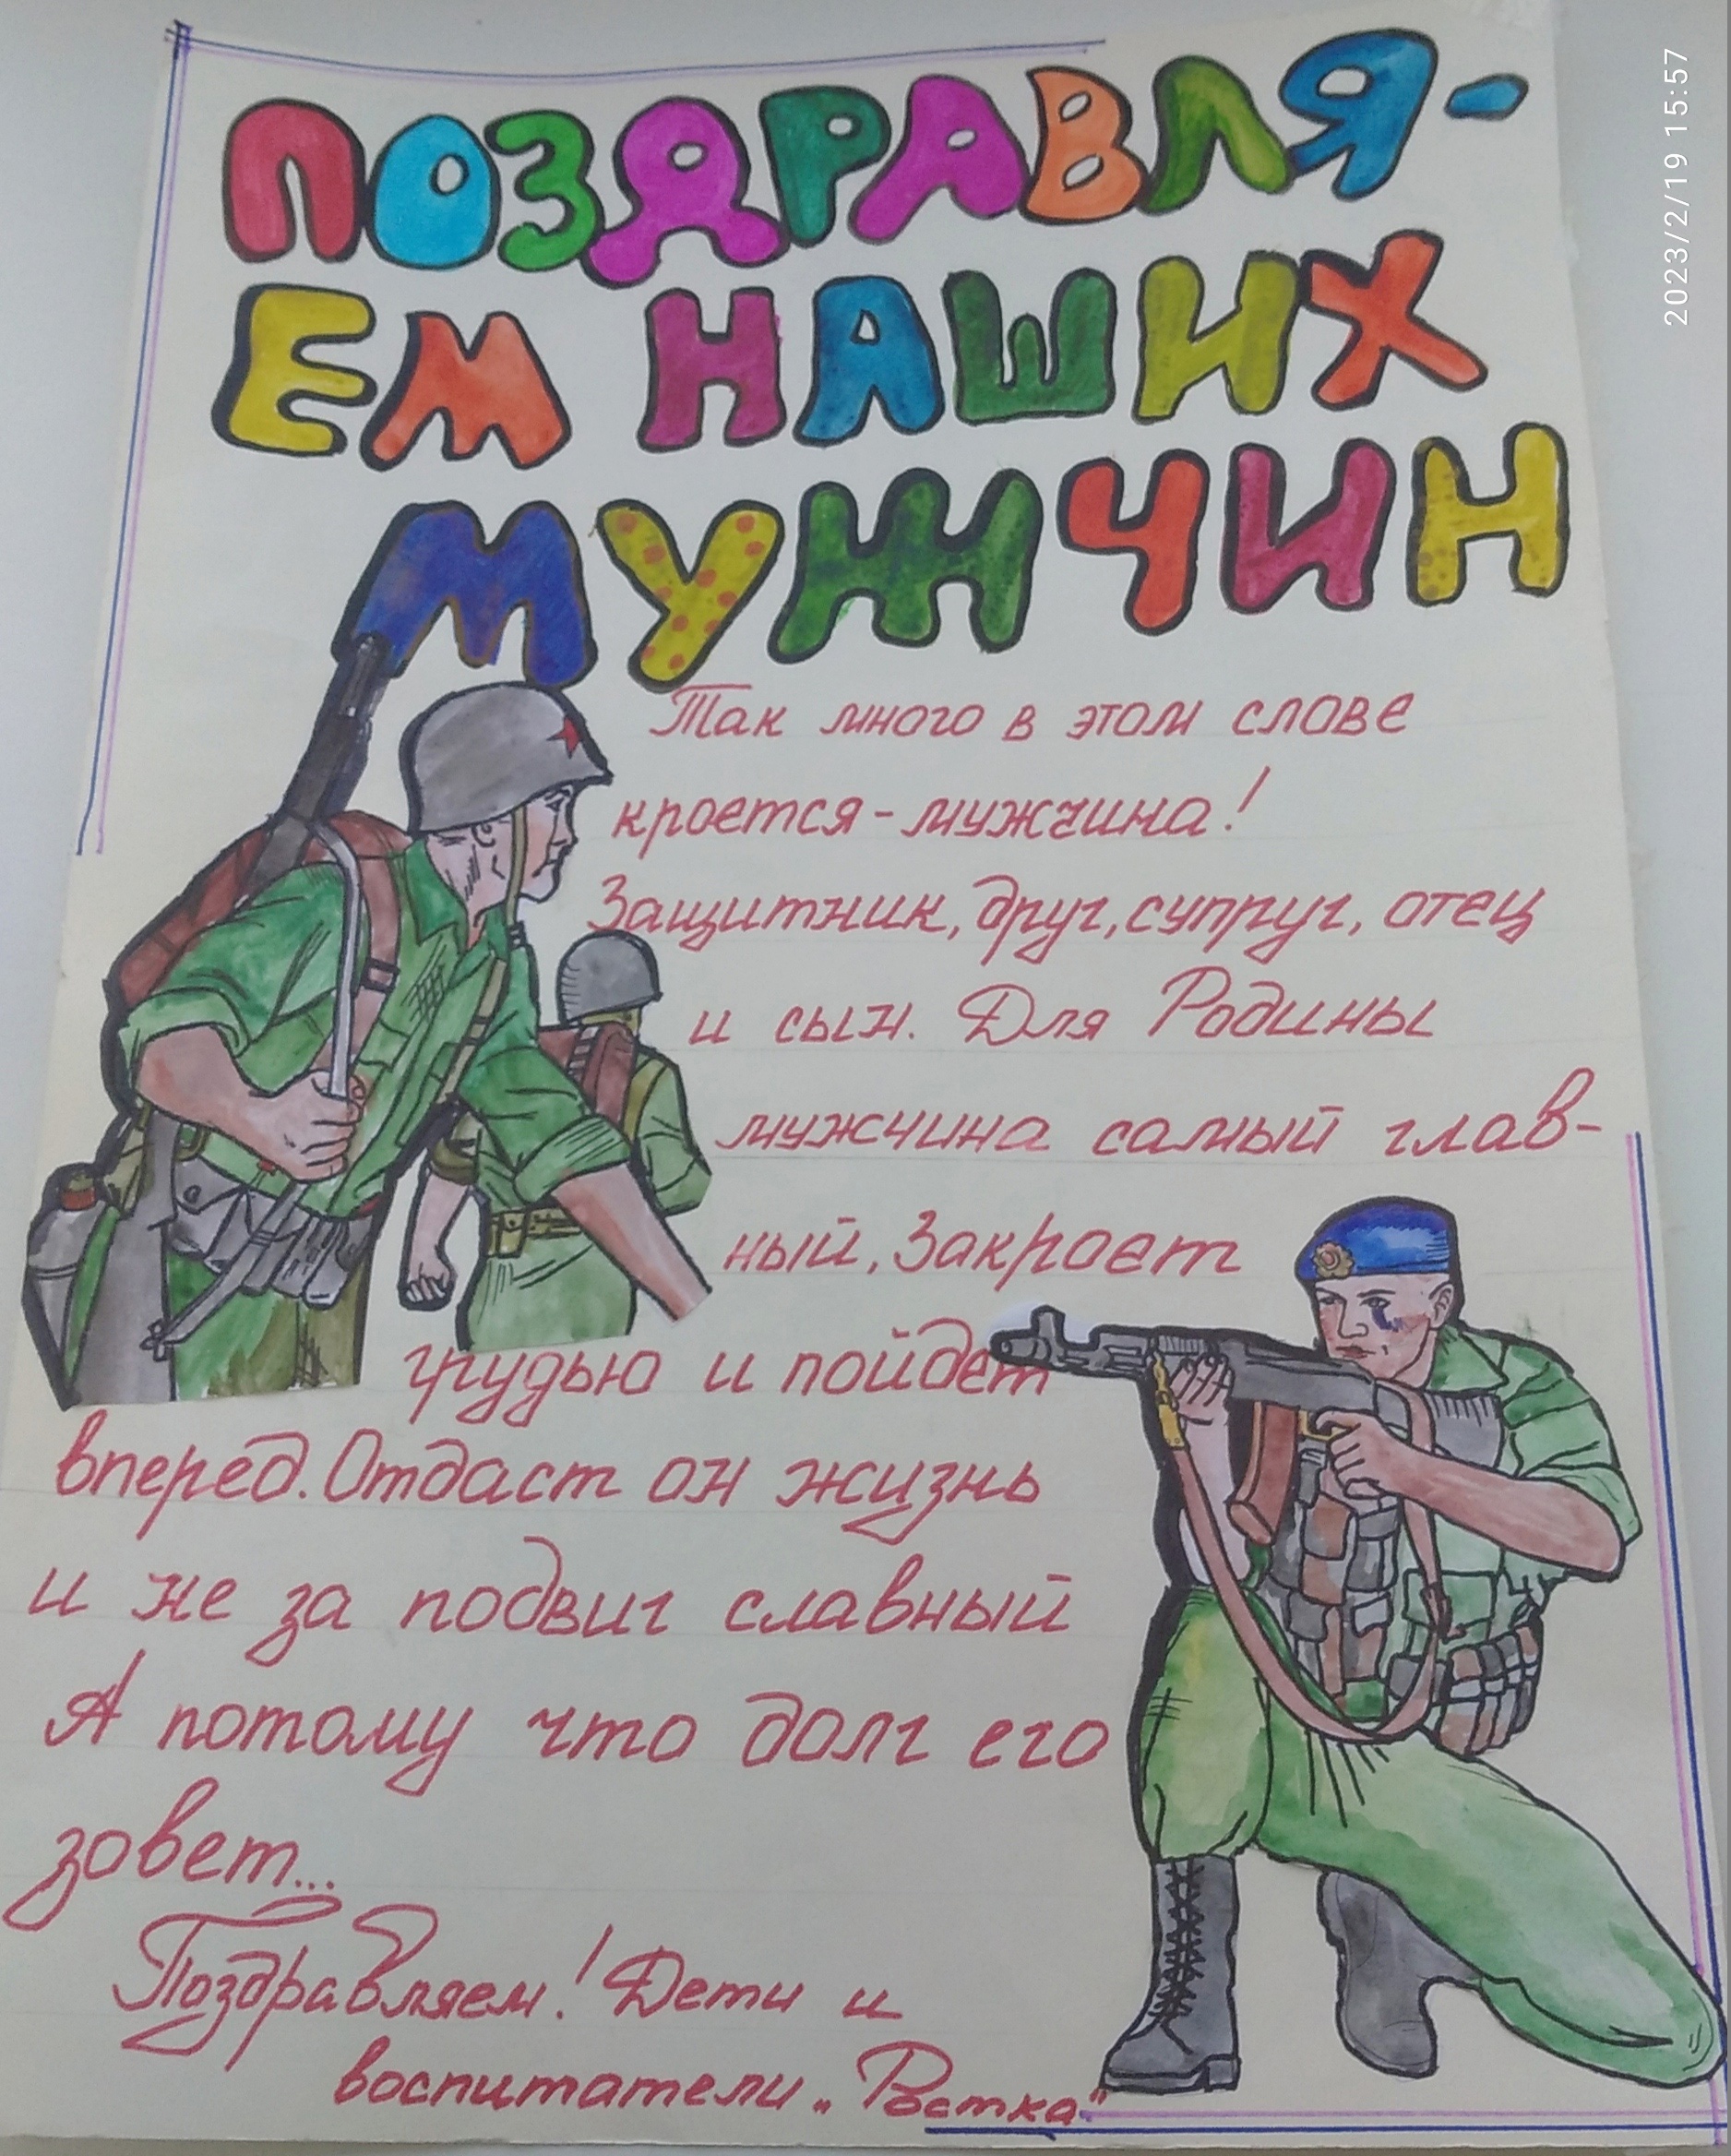 ПОЗДРАВЛЯ-
ЕМ НАШИХ
МУЖЧИН
Так много в этом слове
кроется - мужчина!
Защитник, друг, супруг, отец
и сын. Для Родины
мужчина самый глав-
ный, Закроет
грудью и пойдет
вперёд. Отдаст он жизнь
и не за подвиг славный
А потому что долг его
зовет...
Поздравляем! Дети и
воспитатели „Ростка"
2023/2/19 15:57